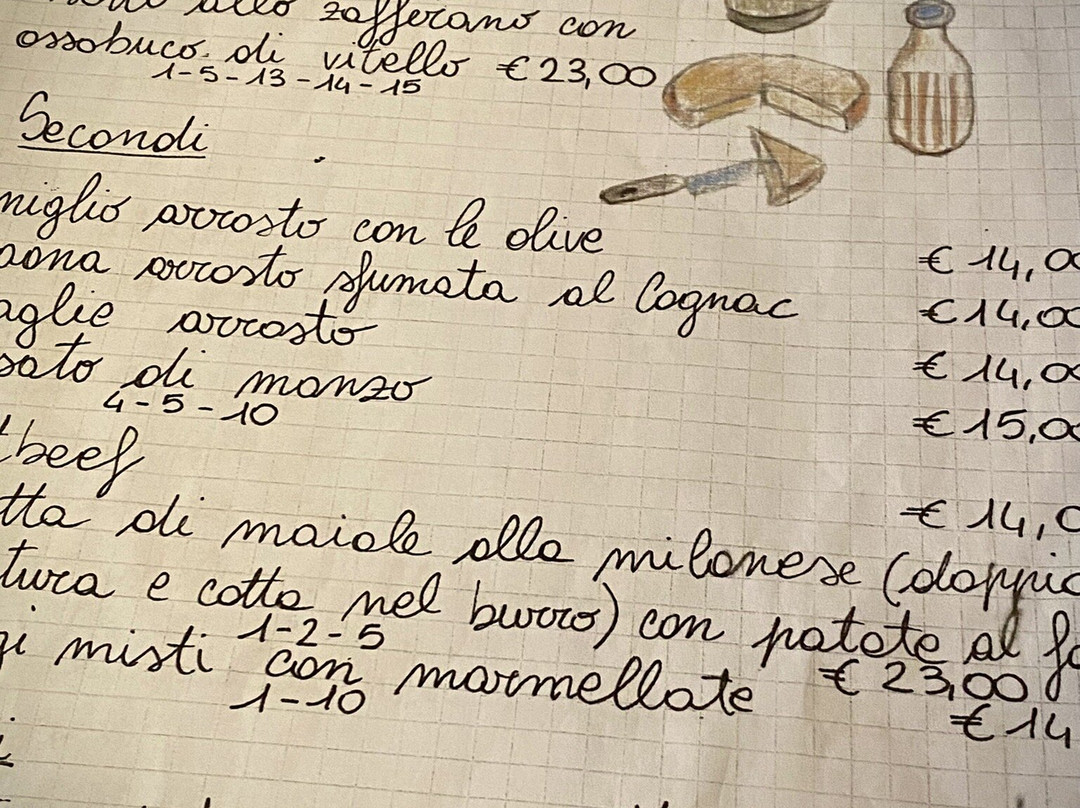 allo zafferano con
ossobuco di vitello €23,00
1-5-13-14-15
Secondi
niglio arrosto con le olive € 14,0
aona arrosto sfumata al Cognac €14,0
aglie arrosto € 14,0
sato di manzo € 15,0
4-5-10
tbeef € 14,0
tta di maiale alla milanese (doppia
tura e cotta nel burro) con patate al fo
1-2-5
€ 23,00
gi misti con marmellate € 14
1-10